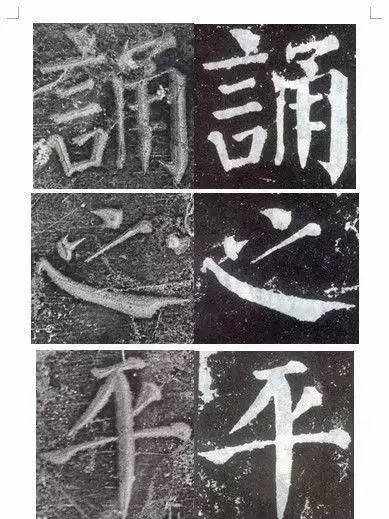 誦誦
之之
平平